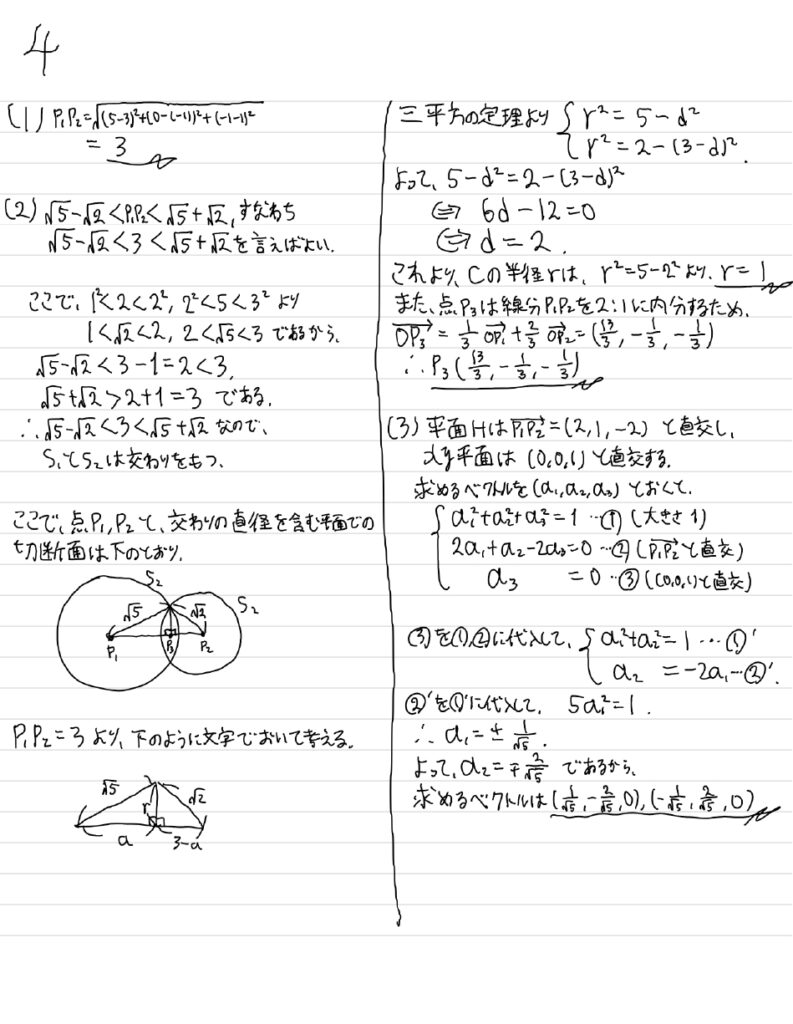 4
(1) P₁P₂=√(5-3)²+(0-(-1))²+(-1-1)²
= 3
(2) √5-√2<P₁P₂<√5+√2, すなわち
√5-√2<3<√5+√2を言えばよい.
ここで, 1²<2<2², 2²<5<3² より
1<√2<2, 2<√5<3 であるから,
√5-√2<3-1=2<3,
√5+√2>2+1=3 である.
∴√5-√2<3<√5+√2 なので,
S₁とS₂は交わりをもつ.
ここで, 点P₁,P₂と, 交わりの直径を含む平面での
切断面は下のとおり.
S₂
S₂
√5
√2
P₁
P₃
P₂
P₁P₂=3 より, 下のように文字でおいて考える.
√5
√2
r
a
3-a
三平方の定理より { r²=5-d²
r²=2-(3-d)².
よって, 5-d²=2-(3-d)²
⇔ 6d-12=0
⇔ d=2.
これより, Cの半径rは, r²=5-2²より, r=1
また, 点P₃は線分P₁P₂を2:1に内分するため,
OP₃→ = 1/3 OP₁→ + 2/3 OP₂→ = (13/3, -1/3, -1/3)
∴ P₃(13/3, -1/3, -1/3)
(3) 平面HはP₁P₂→=(2,1,-2) と直交し,
xy平面は (0,0,1) と直交する.
求めるベクトルを(a₁,a₂,a₃) とおくて,
{ a₁²+a₂²+a₃²=1 …① (大きさ 1)
2a₁+a₂-2a₃=0 …② (P₁P₂→と直交)
a₃ =0 …③ ((0,0,1)と直交)
③を①,②に代入して, { a₁²+a₂²=1 …①′
a₂ =-2a₁…②′.
②′を①′に代入して, 5a₁²=1.
∴ a₁=± 1/√5.
よって, a₂=∓ 2/√5 であるから,
求めるベクトルは (1/√5, -2/√5, 0), (-1/√5, 2/√5, 0)